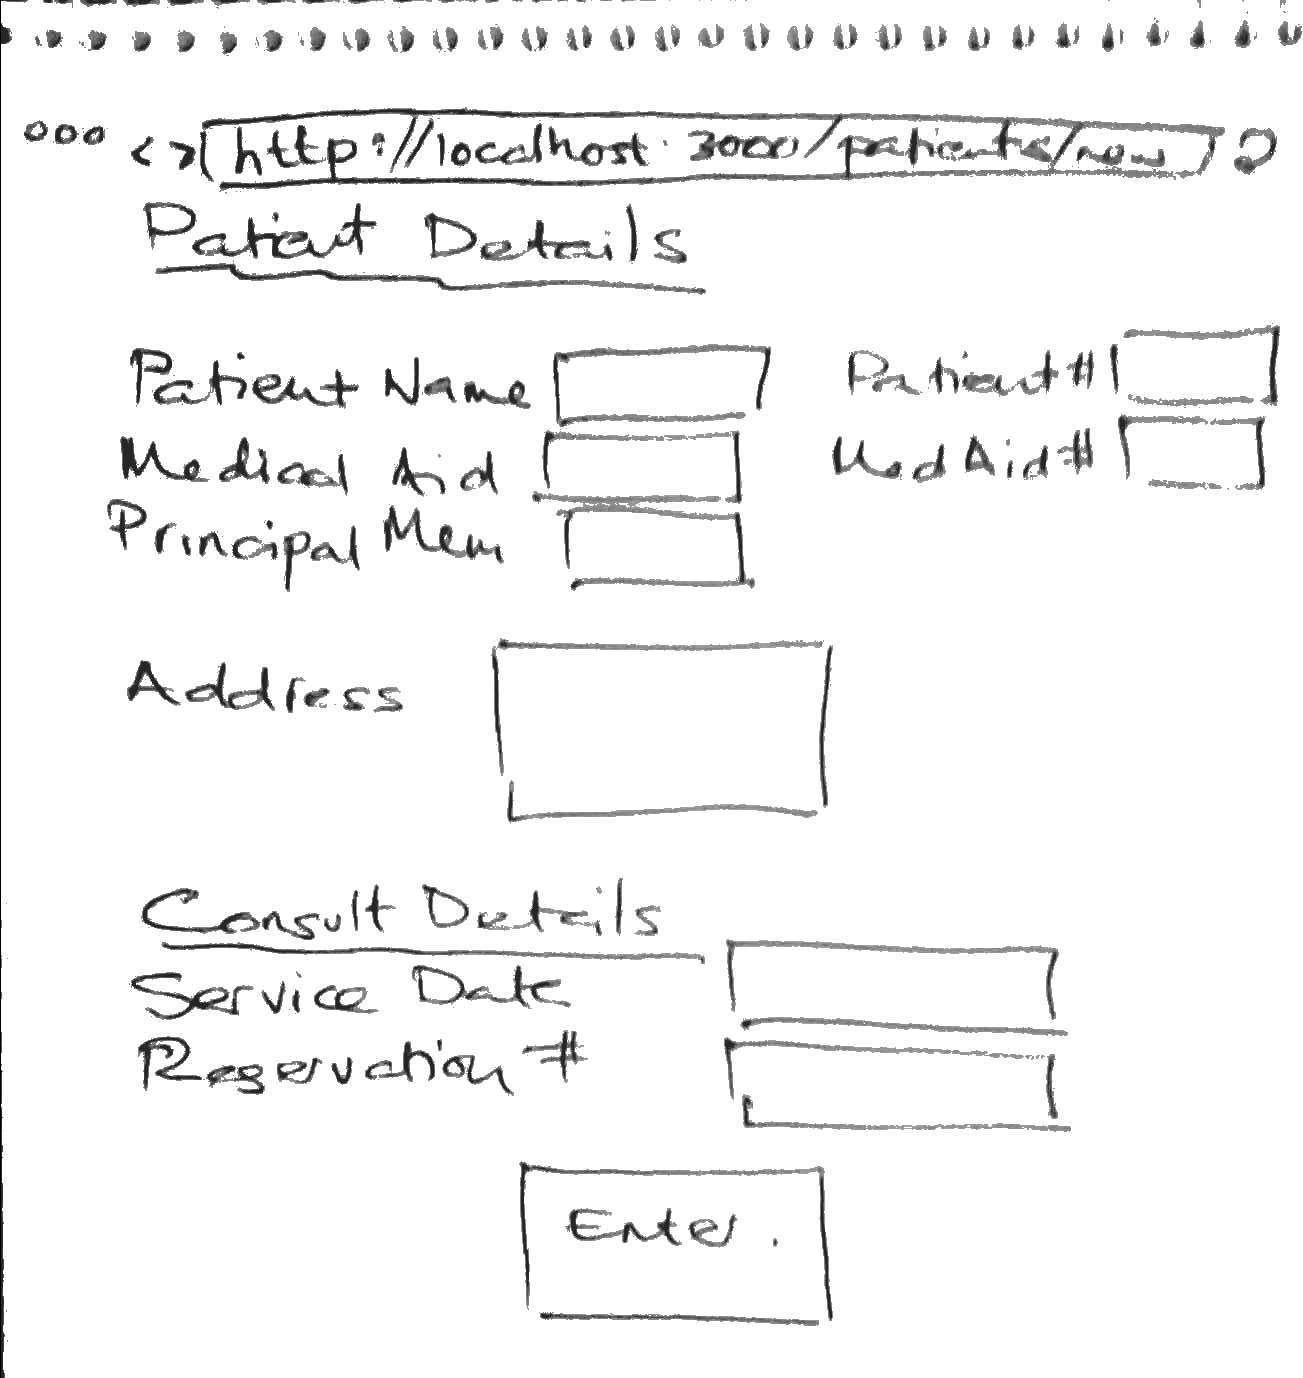 < > http://localhost:3000/patients/new
Patient Details
Patient Name Patient #
Medical Aid Med Aid #
Principal Mem
Address
Consult Details
Service Date
Reservation #
Enter.